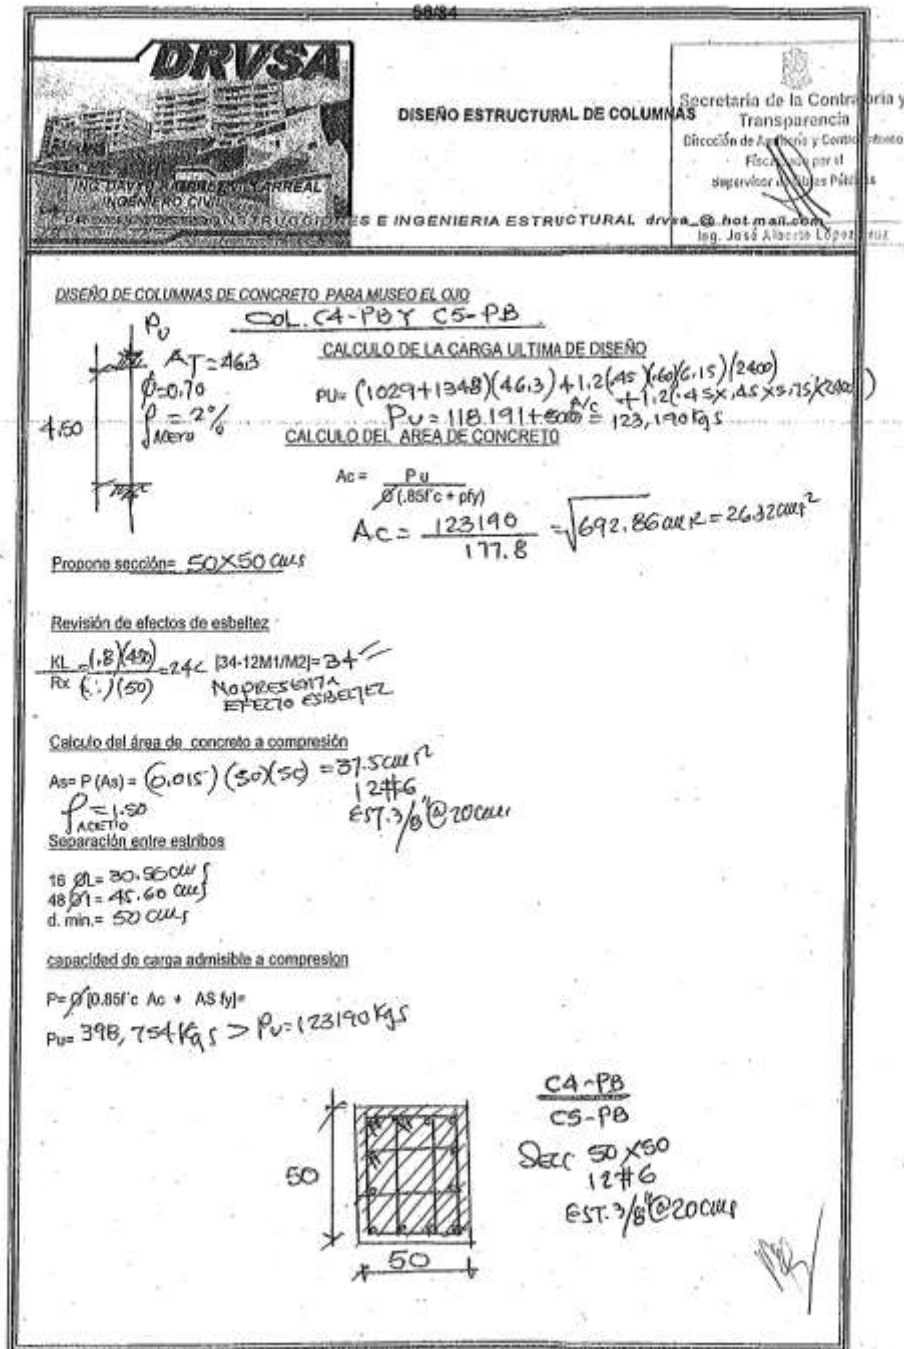 58/84
DRVSA
DISEÑO ESTRUCTURAL DE COLUMNAS
Secretaria de la Contraloria y
Transparencia
Fiscalizado por el
Supervisor de Obras Públicas
Ing. José Alberto López Cruz
INGENIERO CIVIL
E INGENIERIA ESTRUCTURAL drvsa_@hotmail.com
DISEÑO DE COLUMNAS DE CONCRETO PARA MUSEO EL OJO
COL. C4-PB Y C5-PB
PU
AT=46.3
Ø=0.70
ρ = 2%
ACERO
4.50
CALCULO DE LA CARGA ULTIMA DE DISEÑO
PU= (1029+1348)(46.3)+1.2(.45)(.60)(6.15)(2400)
+1.2(.45X.45X5.75)(2400)
PU=118.191+5000 A/c = 123,190 Kgs
CALCULO DEL AREA DE CONCRETO
Ac = Pu
Ø(.85f'c + pfy)
Ac = 123190 = √692.86 cm2 = 26.32 cm2
177.8
Propone sección= 50X50 cms
Revisión de efectos de esbeltez
KL = (.8)(450) = 24< [34-12M1/M2]= 34
Rx (.3)(50)
NO PRESENTA
EFECTO ESBELTEZ
Calculo del área de concreto a compresión
As= P (As) = (0.015)(50)(50) = 37.5 cm2
12#6
EST. 3/8"@20cms
ρ = 1.50
ACERO
Separación entre estribos
16 ØL= 30.56 cms
48 Ø1= 45.60 cms
d. min.= 50 cms
capacidad de carga admisible a compresion
P= Ø [0.85f'c Ac + AS fy]=
Pu= 398,754 Kgs > Pu=123190 Kgs
C4-PB
C5-PB
50
50
SECC 50X50
12#6
EST. 3/8"@20cms